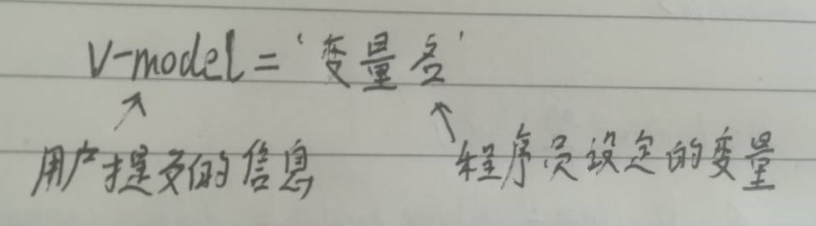 v-model='变量名'
用户提交的信息 程序员设定的变量